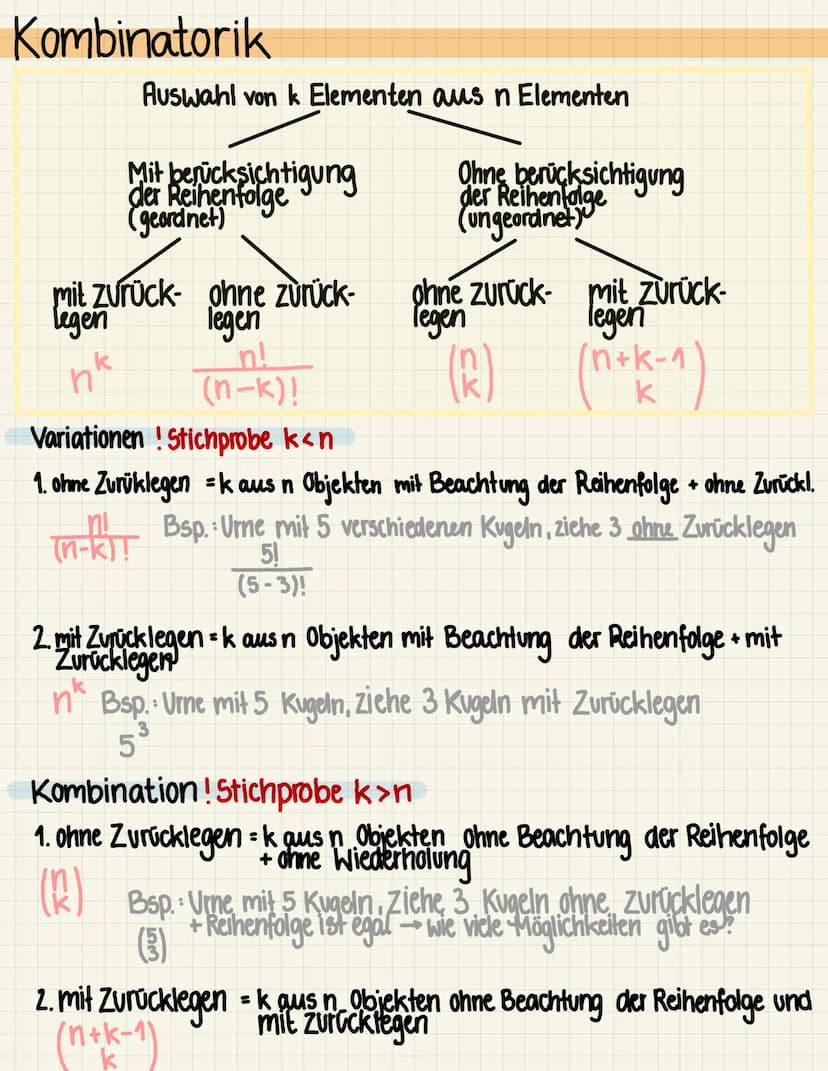 Kombinatorik
Auswahl von k Elementen aus n Elementen
Mit berücksichtigung
der Reihenfolge
(geordnet)
Ohne berücksichtigung
der Reihenfolge
(ungeordnet)
mit zurück-
legen
ohne zurück-
legen
ohne zurück-
legen
mit zurück-
legen
n^k
n!
(n-k)!
(n
k)
(n+k-1
k)
Variationen ! Stichprobe k<n
1. ohne Zurüklegen = k aus n Objekten mit Beachtung der Reihenfolge + ohne Zurückl.
n!
(n-k)!
Bsp.: Urne mit 5 verschiedenen Kugeln, ziehe 3 ohne Zurücklegen
5!
(5-3)!
2. mit Zurücklegen = k aus n Objekten mit Beachtung der Reihenfolge + mit
Zurücklegen
n^k Bsp.: Urne mit 5 Kugeln, ziehe 3 Kugeln mit Zurücklegen
5^3
Kombination ! Stichprobe k>n
1. ohne Zurücklegen = k aus n Objekten ohne Beachtung der Reihenfolge
+ ohne Wiederholung
(n
k)
Bsp.: Urne mit 5 Kugeln, Ziehe 3 Kugeln ohne Zurücklegen
+ Reihenfolge ist egal → wie viele Möglichkeiten gibt es?
(5
3)
2. mit Zurücklegen = k aus n Objekten ohne Beachtung der Reihenfolge und
mit zurücklegen
(n+k-1)
k